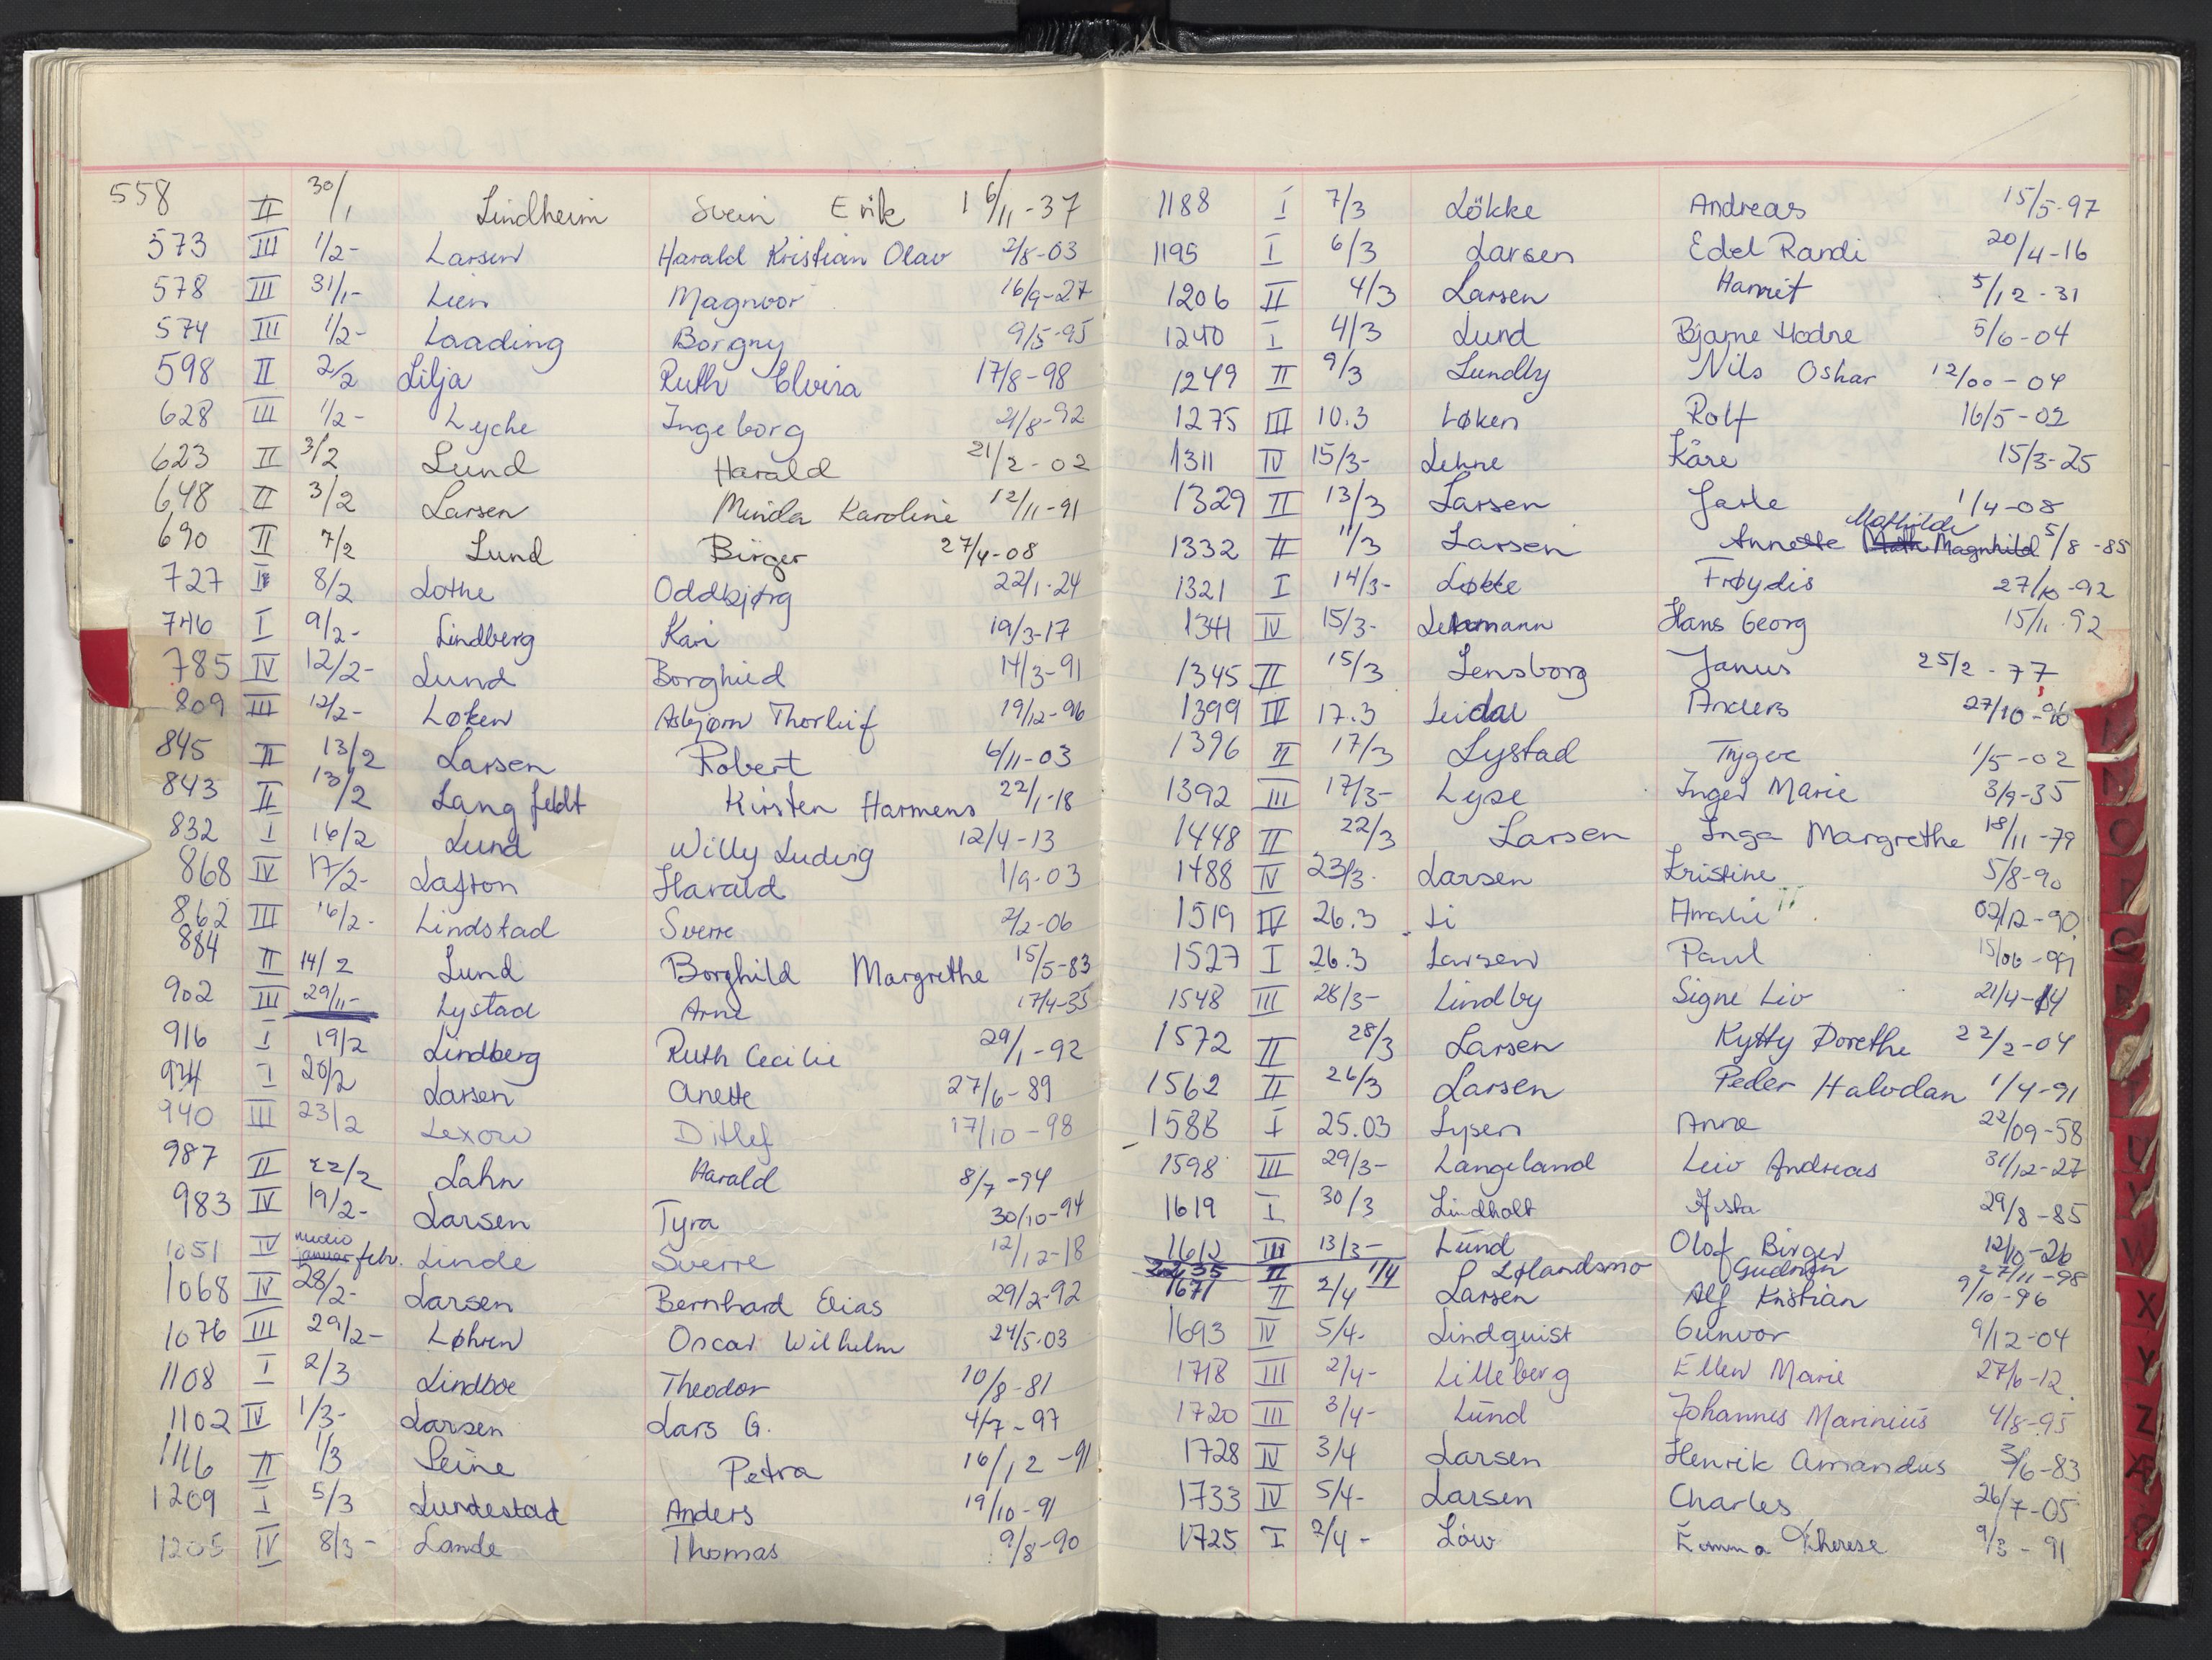 558 II 30/1 Lindheim Svein Erik 16/11-37
573 III 1/2- Larsen Harald Kristian Olav 2/8-03
578 III 31/1- Lien Magnvor 16/9-27
574 III 1/2- Laading Borgny 9/5-95
598 II 2/2 Lilja Ruth Elvira 17/8-98
628 III 1/2- Lyche Ingeborg 21/8-92
623 II 3/2 Lund Harald 21/2-02
648 II 3/2 Larsen Minda Karoline 12/11-91
690 II 7/2 Lund Birger 27/4-08
727 8/2 Lothe Oddbjørg 22/1-24
746 I 9/2- Lindberg Kari 19/3-17
785 IV 12/2- Lund Borghild 14/3-91
809 III 12/2- Løken Asbjørn Thorleif 19/12-96
845 II 13/2 Larsen Robert 6/11-03
843 II 13/2 Langfeldt Kirsten Harmens 22/1-18
832 I 16/2 Lund Willy Ludvig 12/4-13
868 IV 17/2- Lafton Harald 1/9-03
862 III 16/2- Lindstad Sverre 2/2-06
884 II 14/2 Lund Borghild Margrethe 15/5-83
902 III 29/11- Lystad Arne 17/4-35
916 I 19/2 Lindberg Ruth Cecilie 29/1-92
934 I 20/2 Larsen Anette 27/6-89
940 III 23/2 Lexow Ditlef 17/10-98
987 II 22/2 Lahn Harald 8/7-94
983 IV 19/2- Larsen Tyra 30/10-94
1051 IV medio januar febr. Linde Sverre 12/12-18
1068 IV 28/2- Larsen Bernhard Elias 29/2-92
1076 III 29/2- Løhren Oscar Wilhelm 24/5-03
1108 I 2/3 Lindboe Theodor 10/8-81
1102 IV 1/3- Larsen Lars G. 4/7-97
1116 II 1/3 Leine Petra 16/12-91
1209 I 5/3 Lundestad Anders 19/10-91
1205 IV 8/3- Lande Thomas 9/8-90
1188 I 7/3 Lökke Andreas 15/5-97
1195 I 6/3 Larsen Edel Randi 20/4-16
1206 II 4/3 Larsen Harriet 5/12-31
1240 I 4/3 Lund Bjarne Hodne 5/6-04
1249 II 9/3 Lundby Nils Oskar 12/00-04
1275 III 10.3 Løken Rolf 16/5-02
1311 IV 15/3- Lehne Kåre 15/3-25
1329 II 13/3 Larsen Jarle 1/4-08
1332 II 11/3 Larsen Annette Mathilde Math Magnhild 5/8-85
1321 I 14/3- Løkke Frøydis 27/10-92
1341 IV 15/3- Lehmann Hans Georg 15/11-92
1345 II 15/3 Lensborg Janus 25/2-77
1399 IV 17.3 Leidal Anders 27/10-96
1396 II 17/3 Lystad Trygve 1/5-02
1392 III 17/3- Lyse Inger Marie 3/9-35
1448 II 22/3 Larsen Inga Margrethe 18/11-79
1488 IV 23/3- Larsen Kristine 5/8-90
1519 IV 26.3 Li Amalie 02/12-90
1527 I 26.3 Larsen Paul 15/06-99
1548 III 28/3- Lindby Signe Liv 21/4-14
1572 II 28/3 Larsen Kytty Dorethe 22/2-04
1562 II 26/3 Larsen Peder Halvdan 1/4-91
1588 I 25.03 Lysen Anne 22/09-58
1598 III 29/3- Langeland Leiv Andreas 31/12-27
1619 I 30/3 Lindholt Asta 29/8-85
1612 III 13/3- Lund Olof Birger 12/10-26
2235 II 1/4 Lølandsmo Gudrun 27/11-98
1671 II 2/4 Larsen Alf Kristian 9/10-96
1693 IV 5/4- Lindquist Gunvor 9/12-04
1718 III 2/4- Lilleberg Ellen Marie 27/6-12
1720 III 3/4- Lund Johannes Marinius 4/8-95
1728 IV 3/4 Larsen Henrik Amandus 3/6-83
1733 IV 5/4- Larsen Charles 26/7-05
1725 I 7/4- Löw Emma Therese 9/3-91
O
U
V
W
X
Y
Z
Æ